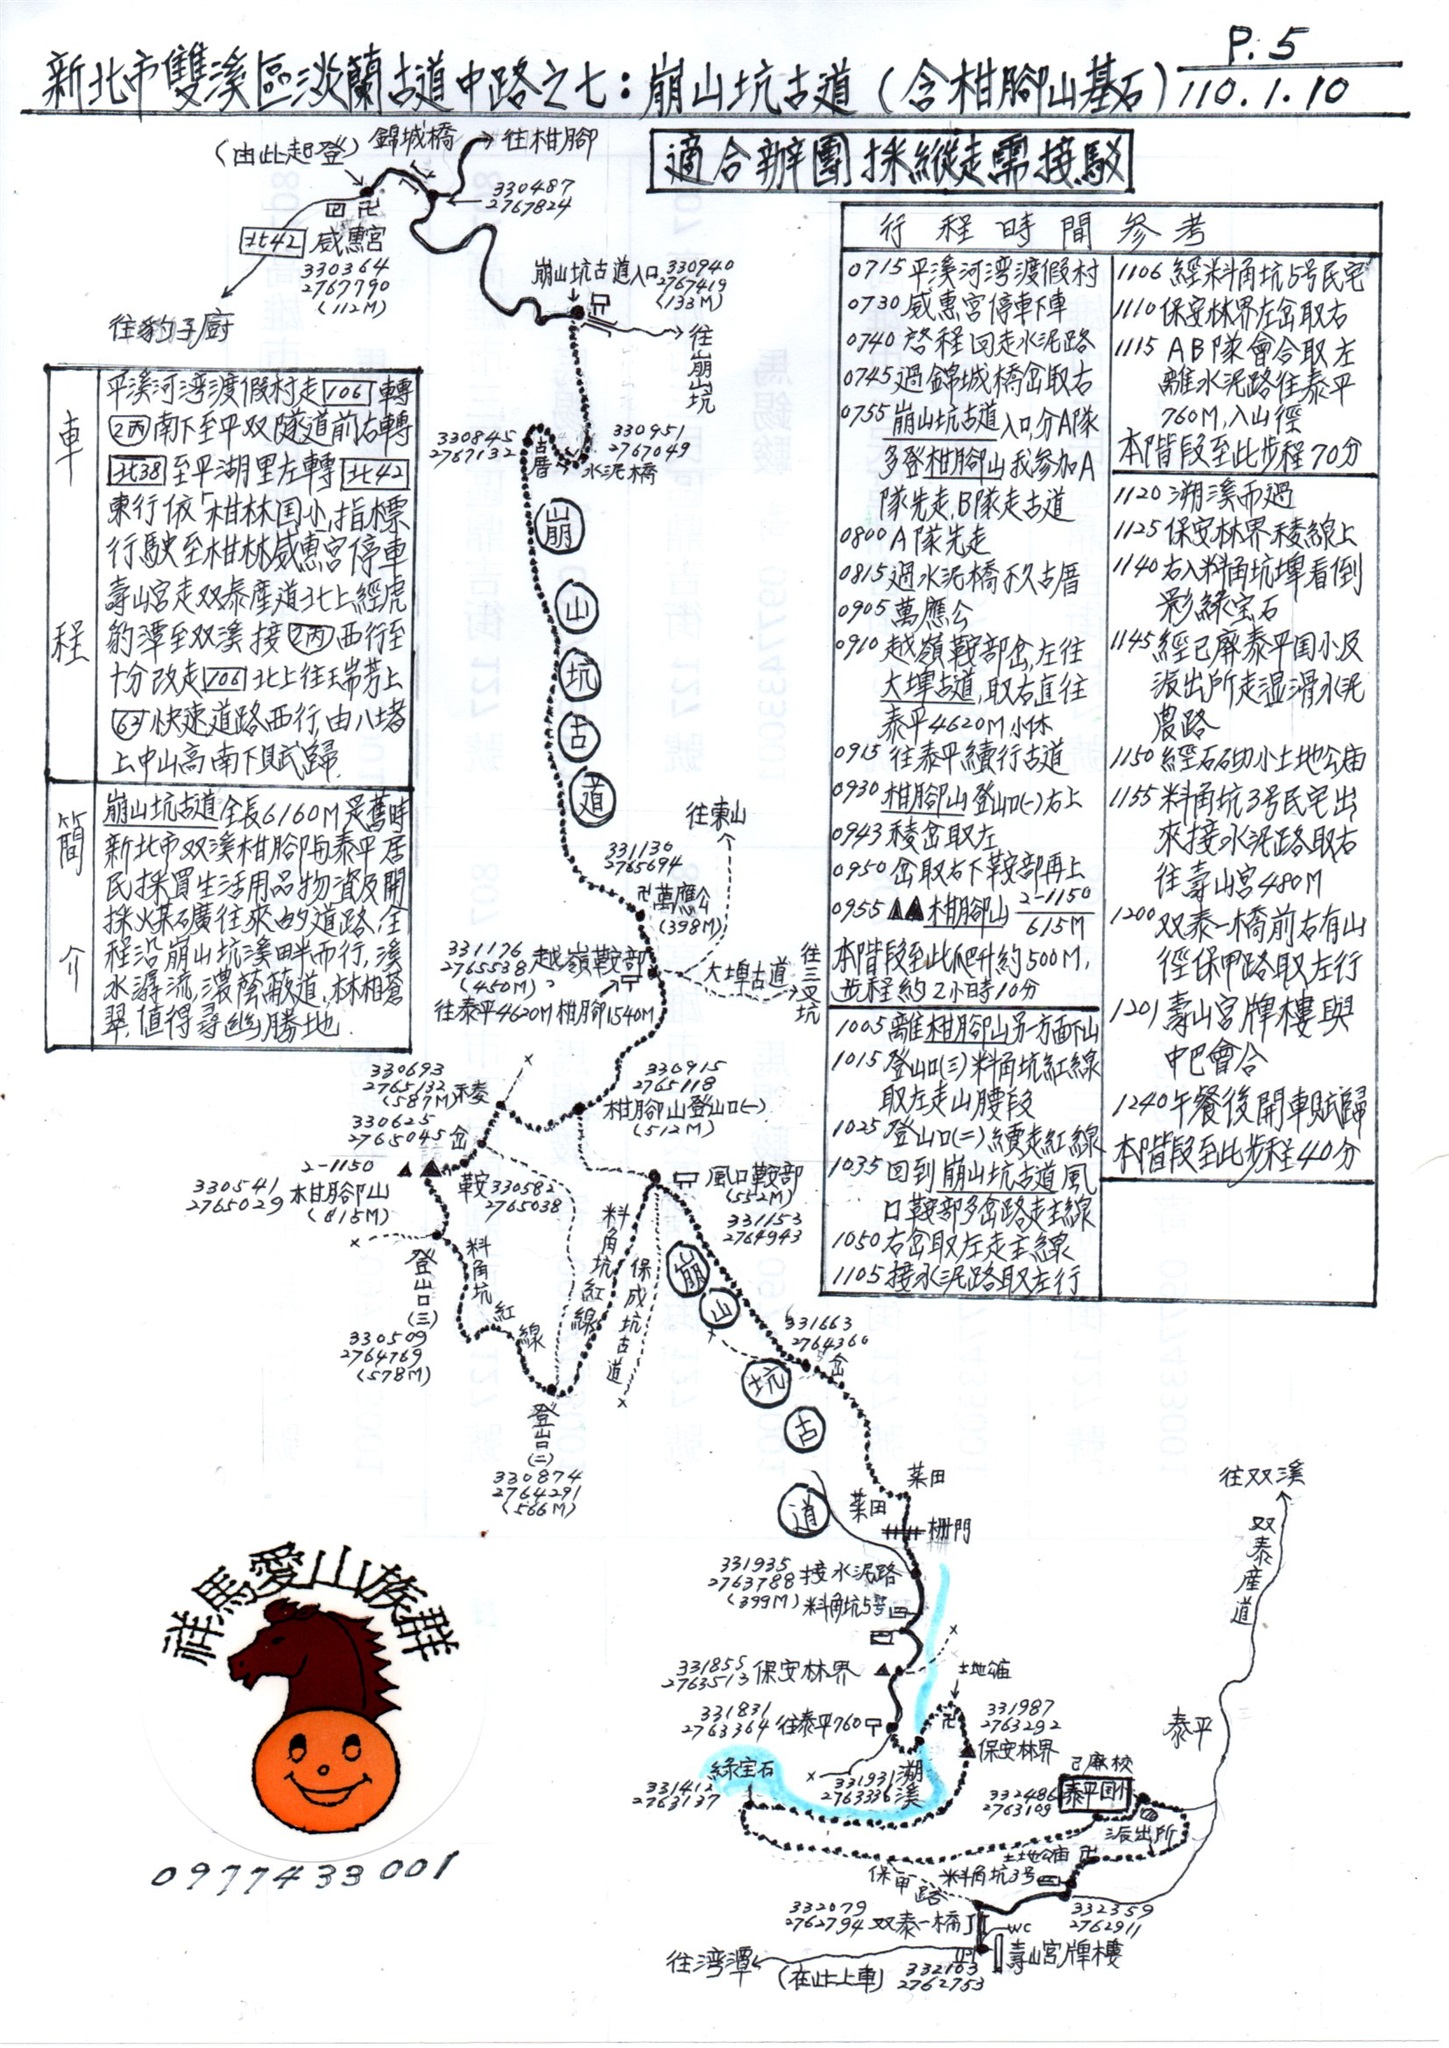 P.5
新北市雙溪區淡蘭古道中路之七：崩山坑古道（含柑腳山基石）110.1.10
適合辦團採縱走需接駁
（由此起登）
錦城橋
往柑腳
330487
2767824
北42
威惠宮
330364
2767790
(112M)
往豹子廚
崩山坑古道入口
330940
2767419
(133M)
往崩山坑
330845
2767132
古厝
330951
2767049
水泥橋
車程
平溪河湾渡假村走106轉
2丙南下至平双隧道前右轉
北38至平湖里左轉北42
東行依「柑林国小」指標
行駛至柑林威惠宮停車
壽山宮走双泰產道北上經虎
豹潭至双溪接2丙西行至
十分改走106北上往瑞芳上
62快速道路西行,由八堵
上中山高南下賦歸.
簡介
崩山坑古道全長6160M是舊時
新北市双溪柑腳与泰平居
民採買生活用品物資及開
採火煤礦往來的道路.全
程沿崩山坑溪畔而行,溪
水潺流,濃蔭蔽道,林相蒼
翠,值得尋幽勝地.
行程時間參考
0715平溪河湾渡假村
0730威惠宮停車下車
0740啓程回走水泥路
0745過錦城橋岔取右
0755崩山坑古道入口,分A隊
多登柑腳山我参加A
隊先走,B隊走古道
0800A隊先走
0815過水泥橋不久古厝
0905萬應公
0910越嶺鞍部岔,左往
大埤古道,取右直往
泰平4620M小休
0915往泰平續行古道
0930柑腳山登山口(一)右上
0943稜岔取左
0950岔取右下鞍部再上
0955▲▲柑腳山 2-1150
615M
本階段至此爬升約500M,
步程約2小時10分
1005離柑腳山另一方面下山
1015登山口(三)料角坑紅線
取左走山腰段
1025登山口(二)續走紅線
1035回到崩山坑古道風
口鞍部多岔路走主線
1050右岔取左走主線
1105接水泥路取左行
1106經料角坑5号民宅
1110保安林界左岔取右
1115AB隊會合取左
離水泥路往泰平
760M,入山徑
本階段至此步程70分
1120溯溪而過
1125保安林界稜線上
1140右入料角坑埤看倒
影綠宝石
1145經已廢泰平国小及
派出所走温滑水泥
農路
1150經石砌小土地公庙
1155料角坑3号民宅出
來接水泥路取右
往壽山宮480M
1200双泰一橋前右有山
徑保甲路取左行
1201壽山宮牌樓與
中巴會合
1240午餐後開車賦歸
本階段至此步程40分
崩山坑古道
往東山
331130
2765694
卍萬應公
(398M)
331176
2765538
(450M)
越嶺鞍部
大埤古道
往三叉坑
往泰平4620M
柑腳1540M
330693
2765132
(587M)
稜
330915
2765118
柑腳山登山口(一)
(512M)
330625
2765045
岔
2-1150
330541
2765029
柑腳山
(615M)
鞍
330582
2765038
風口鞍部
(552M)
331153
2764943
料角坑紅線
料角坑紅線
保成坑古道
登山口(三)
330509
2764769
(578M)
登山口(二)
330874
2764291
(566M)
崩山坑古道
331663
2764360
岔
菜田
菜田
柵門
往双溪
双泰產道
331935
2763788
(399M)
接水泥路
料角坑5号
331855
2763513
保安林界
土地公庙
331831
2763364
往泰平760
331987
2763292
保安林界
泰平
綠宝石
331412
2763137
331931
2763336
溯溪
已廢校
332486
2763109
泰平国小
派出所
土地公庙
料角坑3号
保甲路
332079
2762794
双泰一橋
332359
2762911
WC
壽山宮牌樓
往湾潭
（在此上車）
332103
2762753
祥馬愛山族群
0977433001